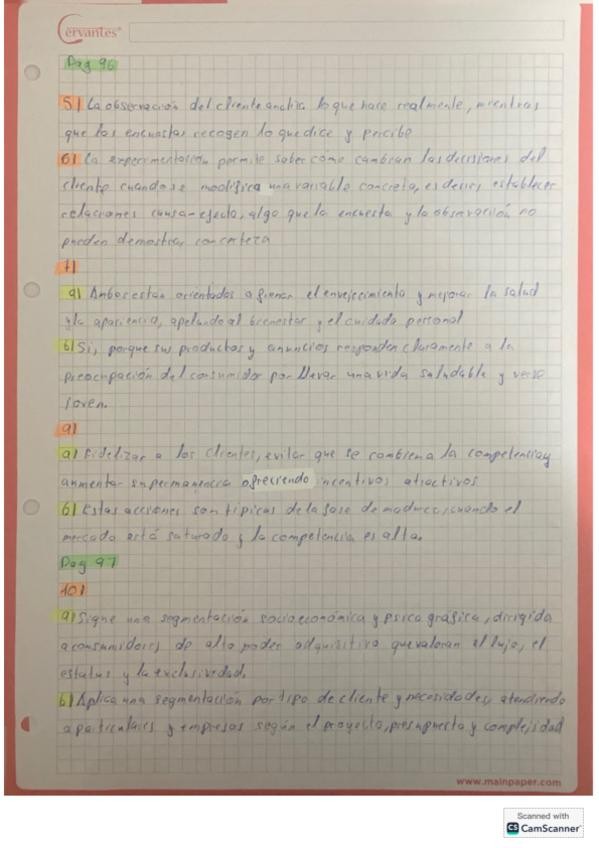 Cervantes®
Pag 96
5) La observación del cliente analiza lo que hace realmente, mientras
que las encuestas recogen lo que dice y percibe
6) La experimentación permite saber cómo cambian las decisiones del
cliente cuando se modifica una variable concreta, es decir, establecer
relaciones causa-efecto, algo que la encuesta y la observación no
pueden demostrar con certeza
7)
a) Ambos estan orientados a frenar el envejecimiento y mejorar la salud
y la apariencia, apelando al bienestar y el cuidado personal
b) Si, porque sus productos y anuncios responden claramente a la
preocupación del consumidor por llevar una vida saludable y verse
joven.
9)
a) Fidelizar a los clientes, evitar que se cambien a la competencia y
aumentar su permanencia ofreciendo incentivos atractivos
b) Estas acciones son típicas de la fase de madurez, cuando el
mercado está saturado y la competencia es alta.
Pag 97
10)
a) Sigue una segmentación socioeconómica y psicográfica, dirigida
a consumidores de alto poder adquisitivo que valoran el lujo, el
estatus y la exclusividad.
b) Aplica una segmentación por tipo de cliente y necesidades, atendiendo
a particulares y empresas según el proyecto, presupuesto y complejidad
www.mainpaper.com
Scanned with
CS CamScanner